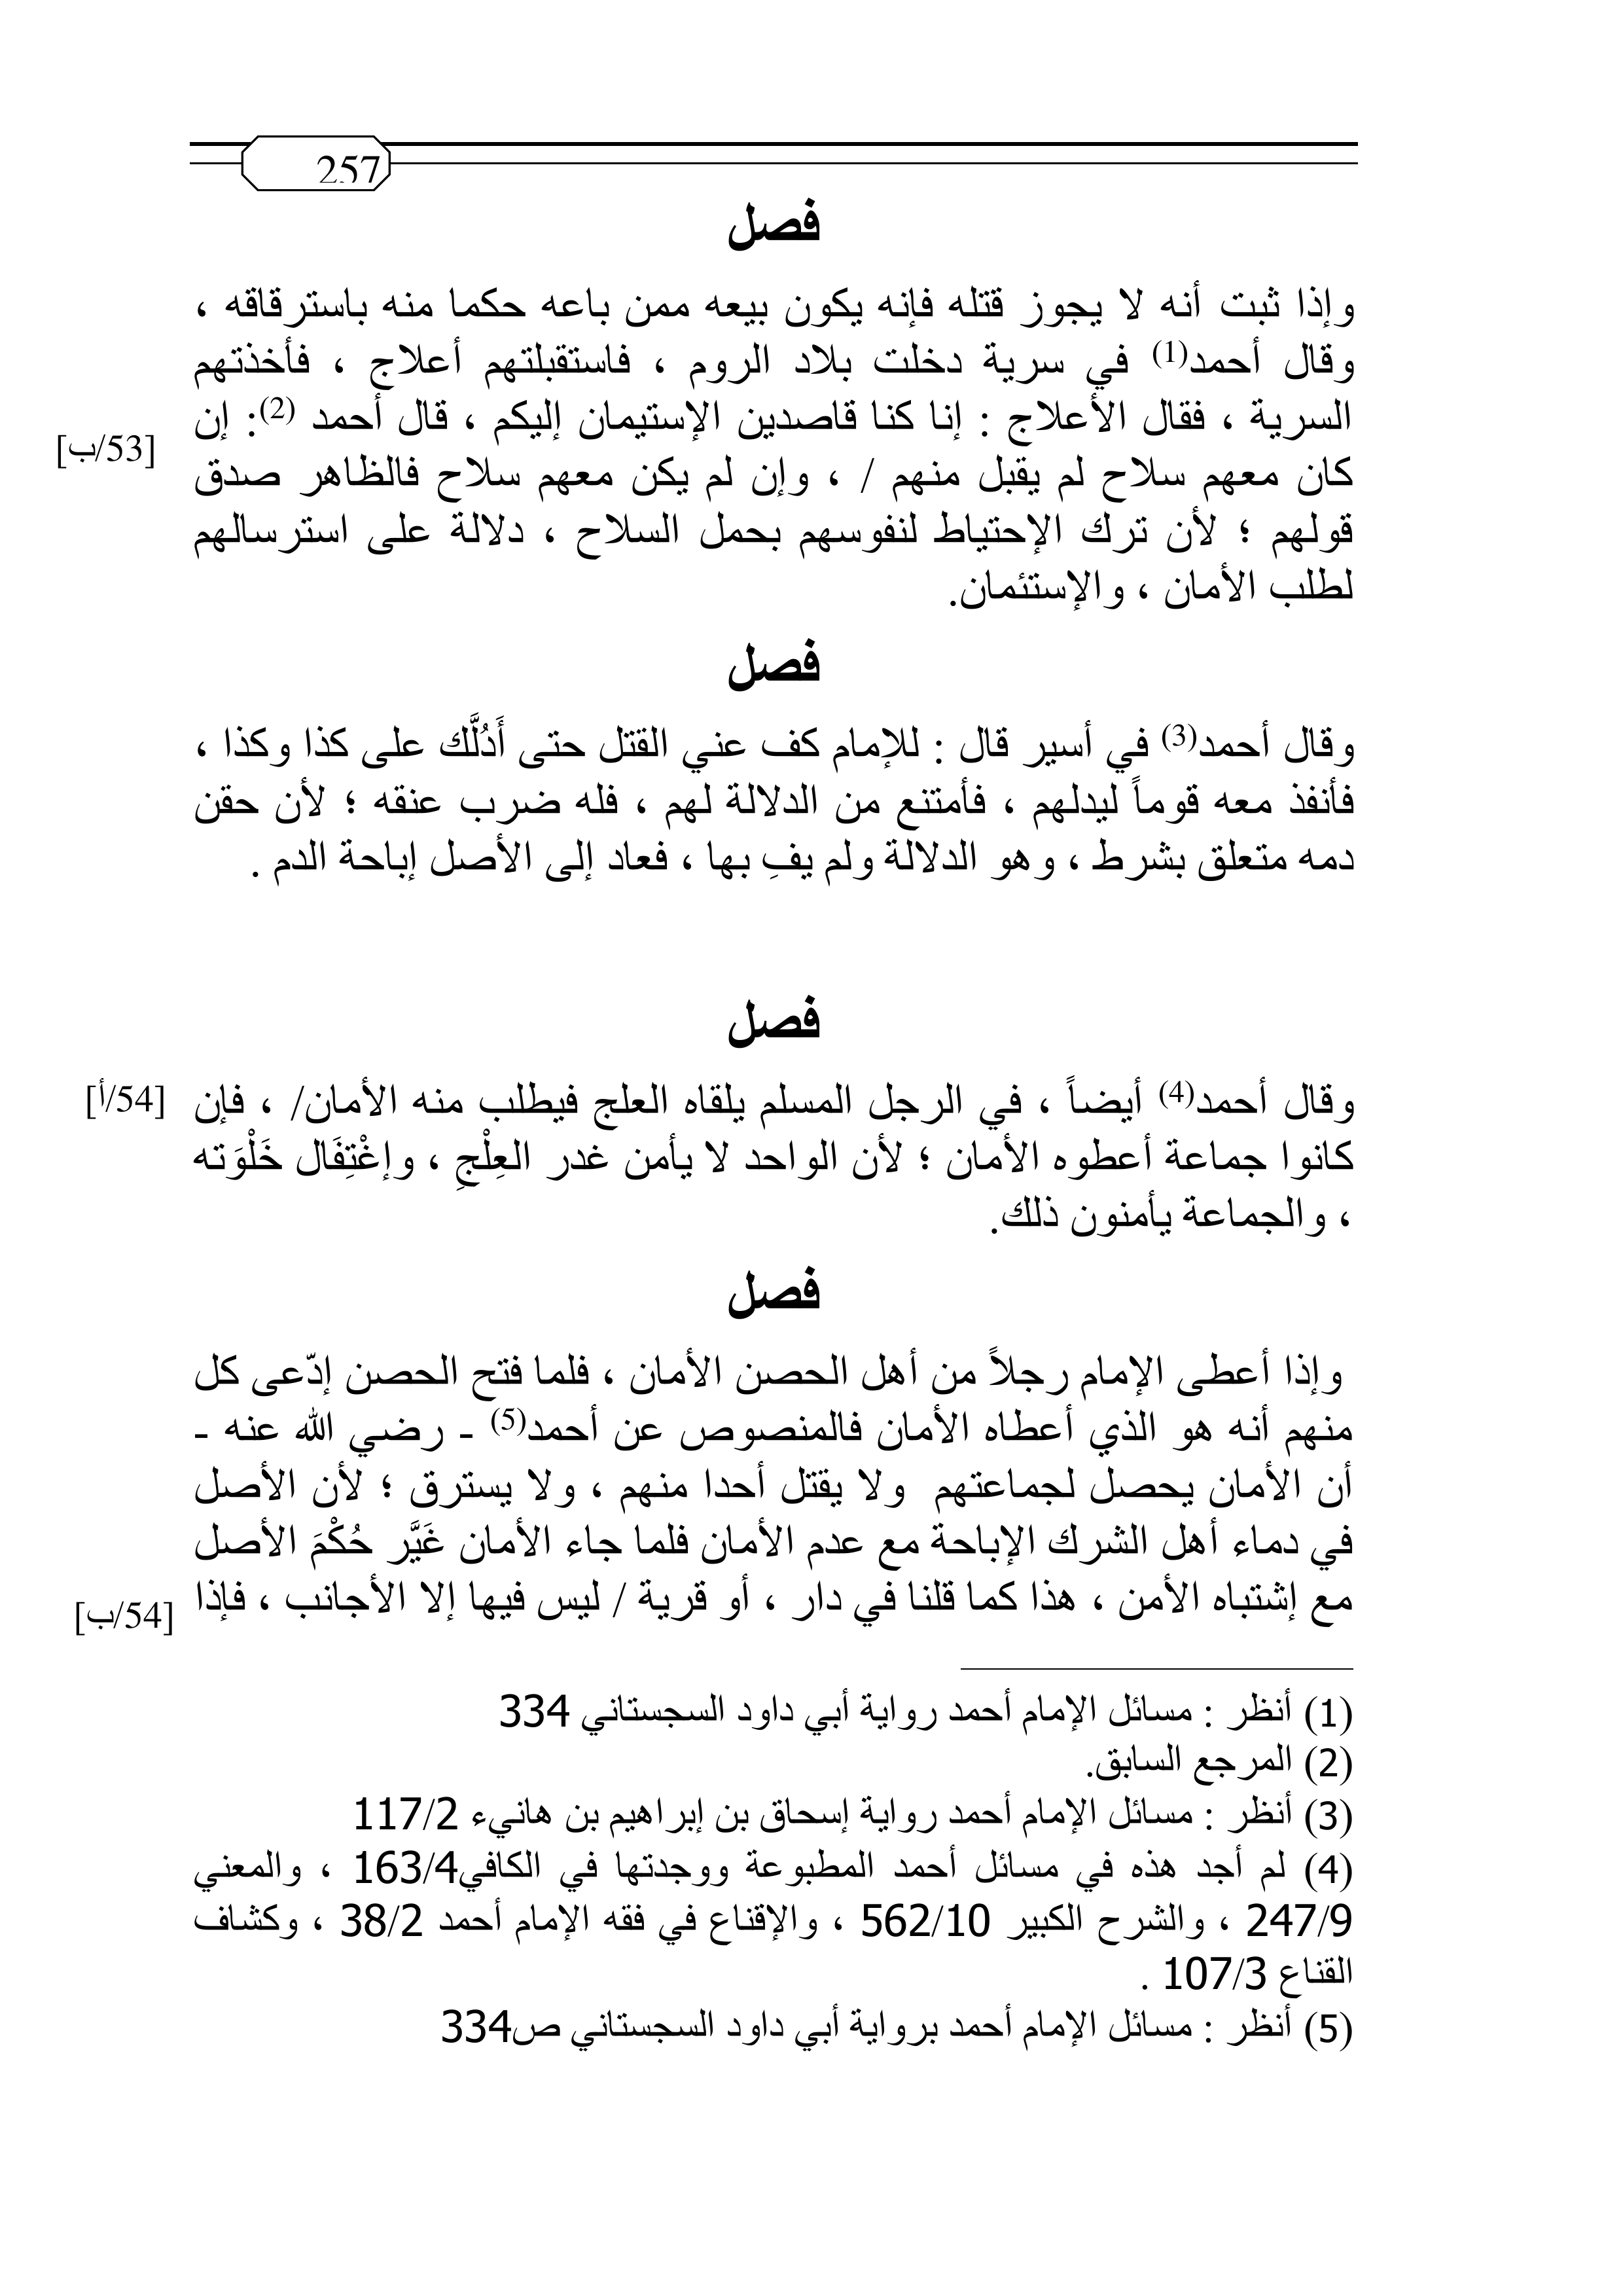 257
فصل
وإذا ثبت أنه لا يجوز قتله فإنه يكون بيعه ممن باعه حكما منه باسترقاقه ،
وقال أحمد(1) في سرية دخلت بلاد الروم ، فاستقبلتهم أعلاج ، فأخذتهم
السرية ، فقال الأعلاج : إنا كنا قاصدين الإستيمان إليكم ، قال أحمد (2): إن
[53/ب]
كان معهم سلاح لم يقبل منهم / ، وإن لم يكن معهم سلاح فالظاهر صدق
قولهم ؛ لأن ترك الإحتياط لنفوسهم بحمل السلاح ، دلالة على استرسالهم
لطلب الأمان ، والإستئمان.
فصل
وقال أحمد(3) في أسير قال : للإمام كف عني القتل حتى أَدُلَّك على كذا وكذا ،
فأنفذ معه قوماً ليدلهم ، فأمتنع من الدلالة لهم ، فله ضرب عنقه ؛ لأن حقن
دمه متعلق بشرط ، وهو الدلالة ولم يفِ بها ، فعاد إلى الأصل إباحة الدم .
فصل
وقال أحمد(4) أيضاً ، في الرجل المسلم يلقاه العلج فيطلب منه الأمان/ ، فإن
[54/أ]
كانوا جماعة أعطوه الأمان ؛ لأن الواحد لا يأمن غدر العِلْجِ ، وإغْتِفَال خَلْوَته
، والجماعة يأمنون ذلك.
فصل
وإذا أعطى الإمام رجلاً من أهل الحصن الأمان ، فلما فتح الحصن إدّعى كل
منهم أنه هو الذي أعطاه الأمان فالمنصوص عن أحمد(5) - رضي الله عنه -
أن الأمان يحصل لجماعتهم ولا يقتل أحدا منهم ، ولا يسترق ؛ لأن الأصل
في دماء أهل الشرك الإباحة مع عدم الأمان فلما جاء الأمان غَيَّر حُكْمَ الأصل
مع إشتباه الأمن ، هذا كما قلنا في دار ، أو قرية / ليس فيها إلا الأجانب ، فإذا
[54/ب]
(1) أنظر : مسائل الإمام أحمد رواية أبي داود السجستاني 334
(2) المرجع السابق.
(3) أنظر : مسائل الإمام أحمد رواية إسحاق بن إبراهيم بن هانيء 117/2
(4) لم أجد هذه في مسائل أحمد المطبوعة ووجدتها في الكافي163/4 ، والمعني
247/9 ، والشرح الكبير 562/10 ، والإقناع في فقه الإمام أحمد 38/2 ، وكشاف
القناع 107/3 .
(5) أنظر : مسائل الإمام أحمد برواية أبي داود السجستاني ص334